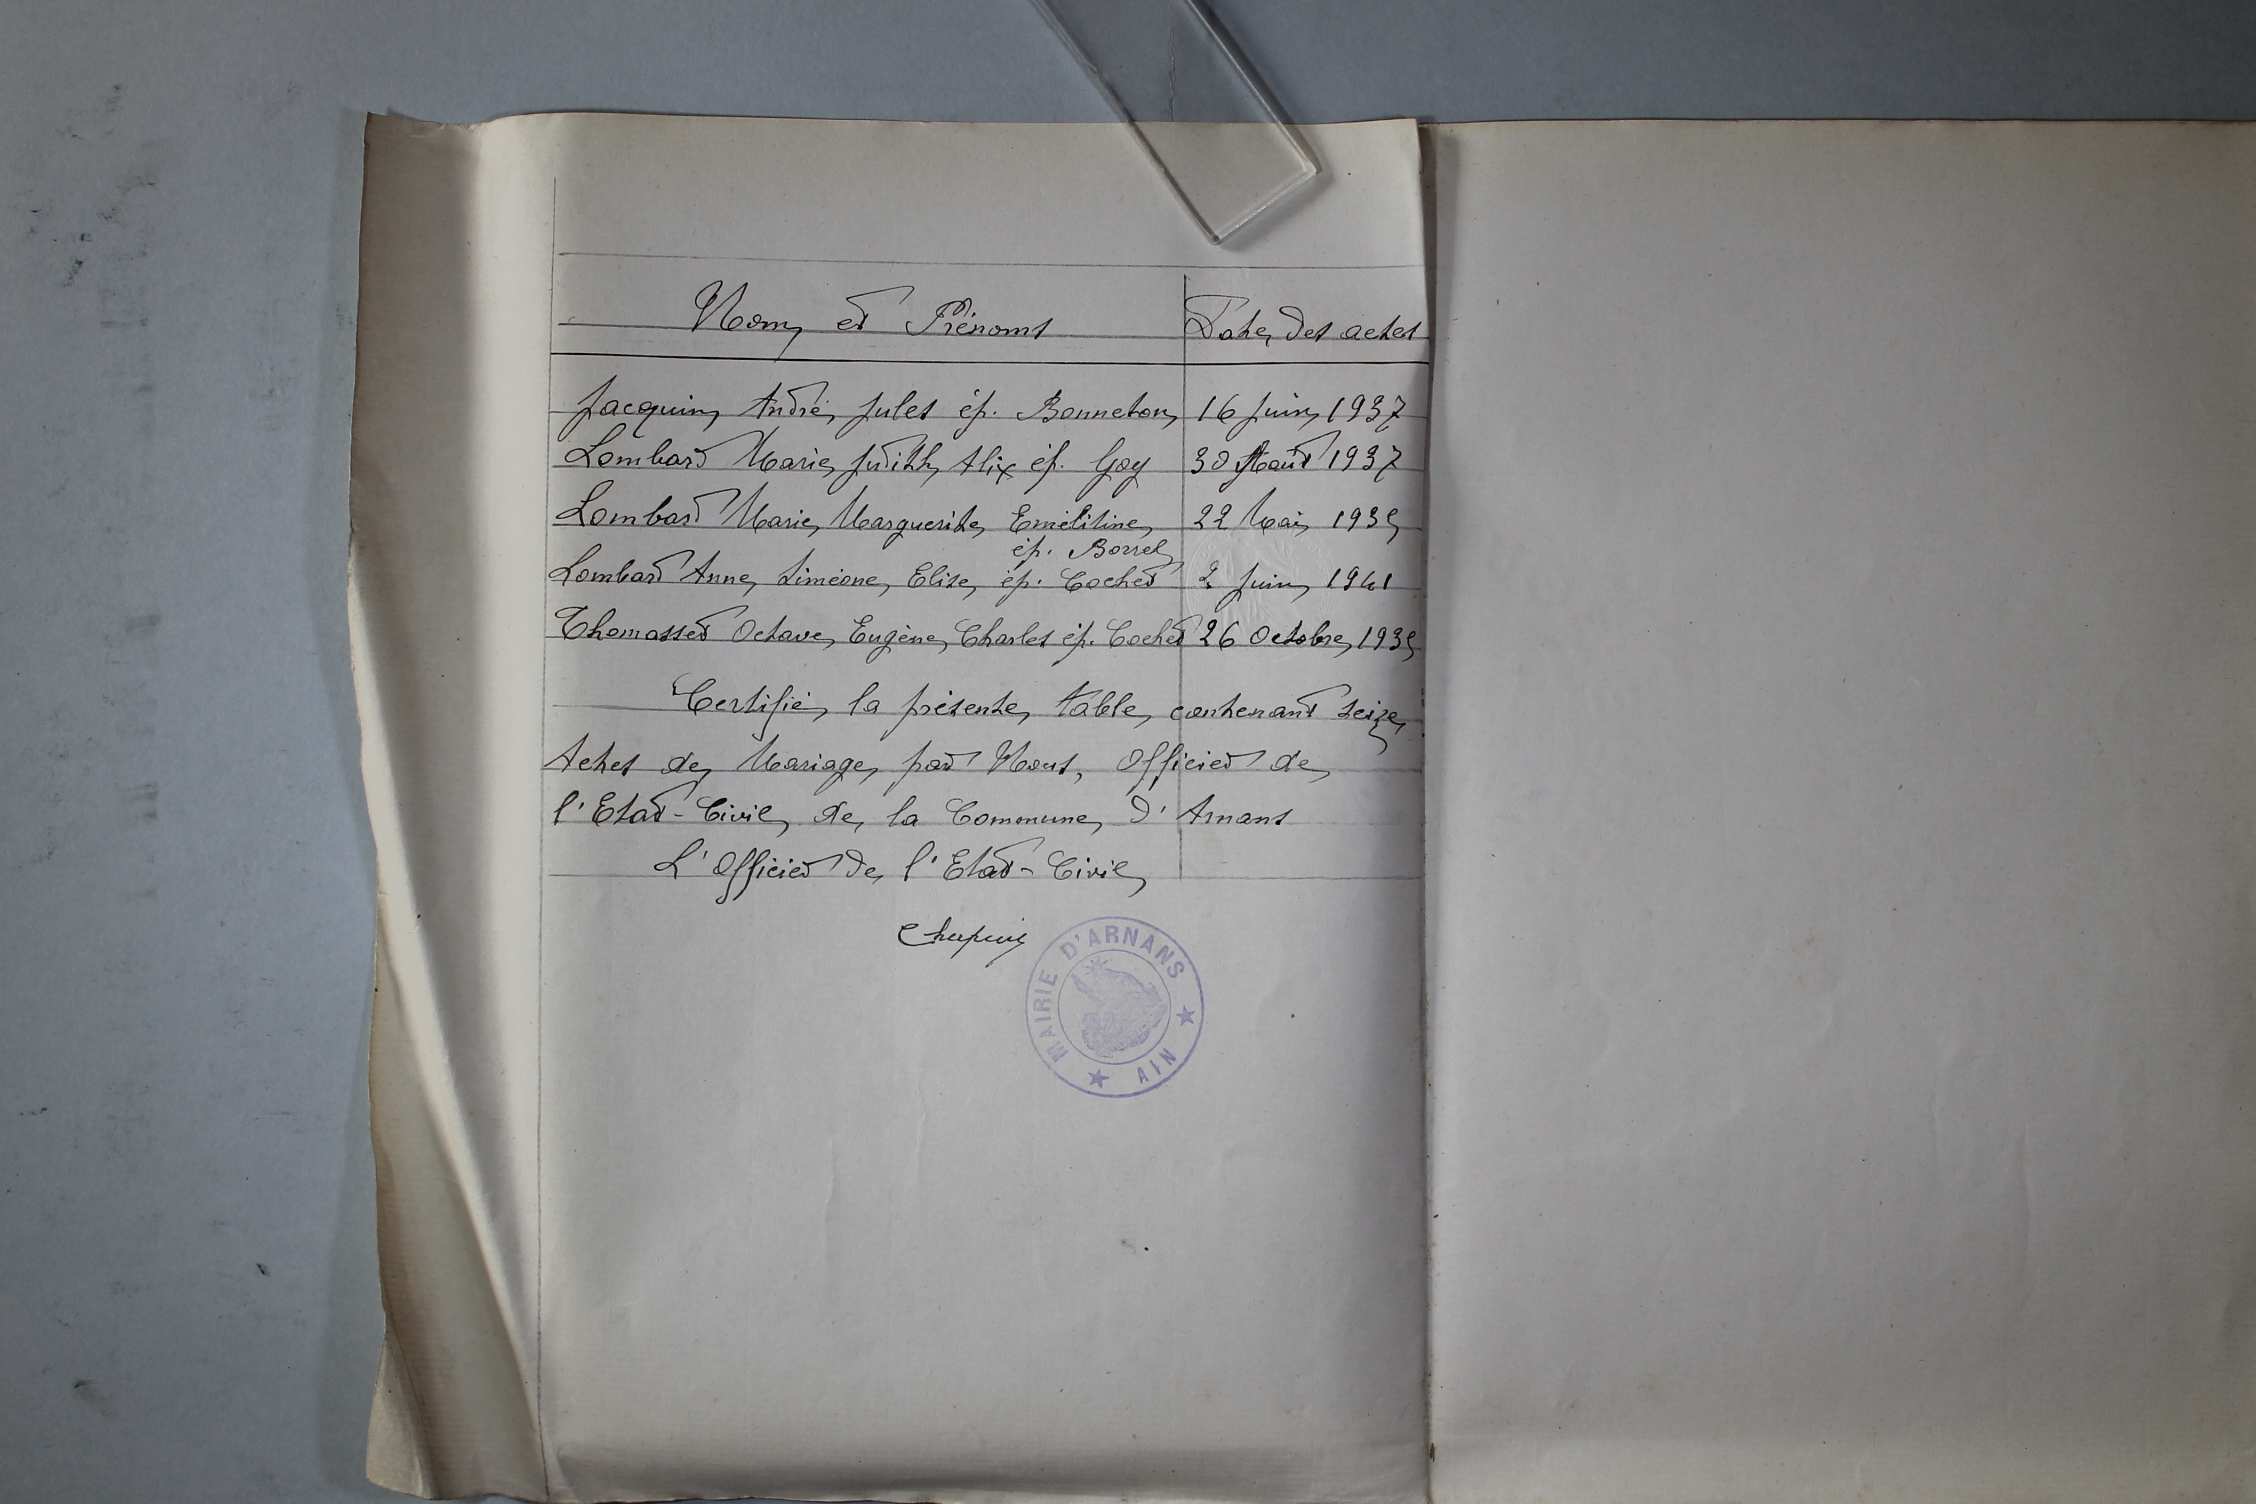 Noms et Prénoms | Date des actes
Jacquin André Jules ép. Bonneton | 16 Juin 1937
Lombard Marie Judith Alix ép. Goy | 30 Août 1937
Lombard Marie Marguerite Emélitine | 22 Mai 1935
ép. Borrel
Lombard Anne Siméone Elise ép. Cochet | 2 Juin 1941
Thomasset Octave Eugène Charles ép. Cochet | 26 Octobre 1935
Certifié la présente table contenant seize
Actes de Mariage par Nous, Officier de
l'Etat-Civil de la Commune d'Arnans
L'Officier de l'Etat-Civil
Chapuis
MAIRIE D'ARNANS ★ AIN ★